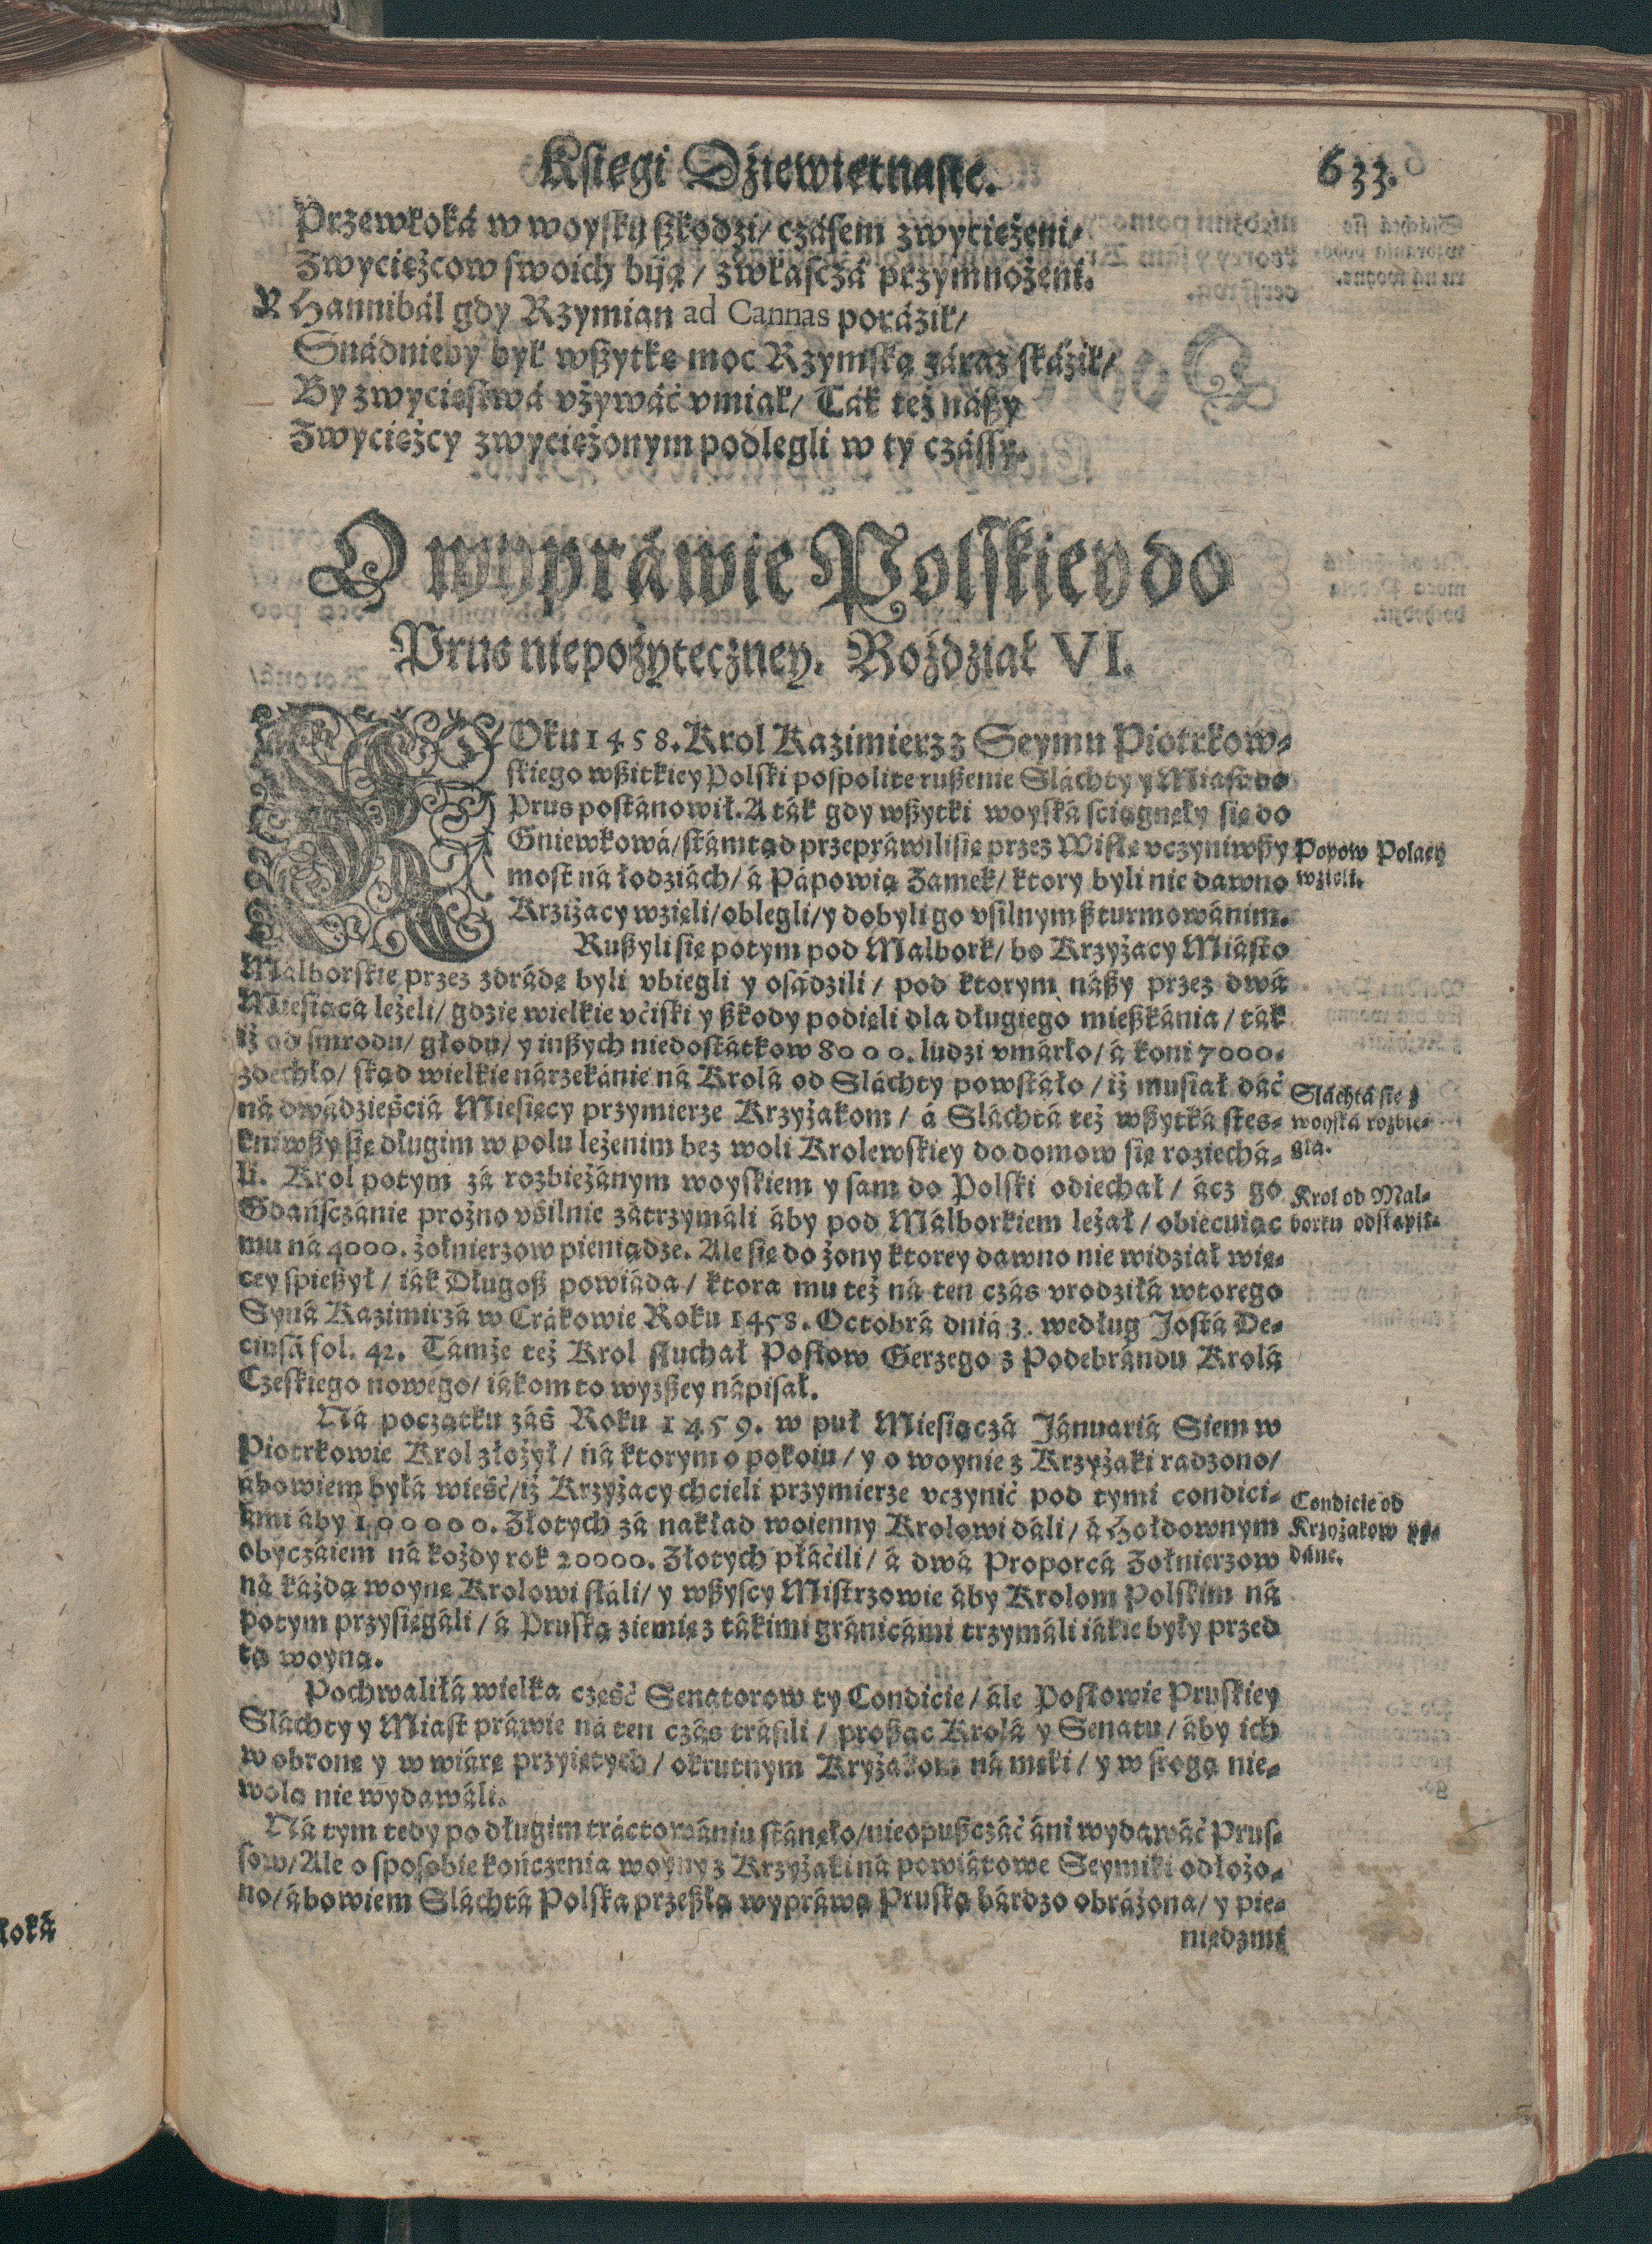 Księgi Dźiewiętnaste. 633.
Przewłoká w woysku ßkodzi/ czásem zwyciężeni/
Zwyciężcow swoich biją/ zwłasczá przymnożeni.
Y Hannibál gdy Rzymian ad Cannas poráził/
Snádnieby był wßytkę moc Rzymską záraz skáził/
By zwycięstwá vżywáć vmiał/ Ták też nászy
Zwyciężcy zwyciężonym podlegli w ty czássy.
O wypráwie Polskiey do
Prus niepożyteczney. Rozdział VI.
ROku 1458. Krol Kazimierz z Seymu Piotrkow-
skiego wßitkiey Polski pospolite rußenie Sláchty y Miast do
Prus postánowił. A ták gdy wßytki woyská sciągnęły się do
Gniewkowá/ stámtąd przepráwili się przez Wisłę vczyniwßy
most ná łodziách/ á Pápowią Zamek/ ktory byli nie dawno
Krziżacy wzięli/ oblegli/ y dobyli go vsilnym ßturmowánim.
Popow Polacy
wzięli.
Rußyli się potym pod Malbork/ bo Krzyżacy Miásto
Málborskie przez zdrádę byli vbiegli y osádzili/ pod ktorym nászy przez dwá
Miesiącá leżeli/ gdzie wielkie vćiski y ßkody podięli dla długiego mießkánia/ ták
iż od smrodu/ głodu/ y inßych niedostátkow 8000. ludzi vmárło/ á koni 7000.
zdechło/ skąd wielkie nárzekánie ná Krolá od Sláchty powstáło/ iż musiał dáć
ná dwádzieściá Miesięcy przymierze Krzyżakom/ á Sláchtá też wßytká stes-
kniwßy się długim w polu leżenim bez woli Krolewskiey do domow się roziechá-
li. Krol potym zá rozbieżánym woyskiem y sam do Polski odiechał/ ácz go
Sláchtá się z
woyská rozbie-
głá.
Gdáńsczánie prożno vśilnie zátrzymáli áby pod Málborkiem leżał/ obiecuiąc
mu ná 4000. żołnierzow pieniądze. Ale się do żony ktorey dawno nie widział wię-
cey spießył/ iák Długoß powiáda/ ktora mu też ná ten czás vrodziłá wtorego
Syná Kazimirzá w Crákowie Roku 1458. Octobrá dniá 3. według Jostá De-
ciusá fol. 42. Támże też Krol słuchał Posłow Gerzego z Podebrándu Krolá
Czeskiego nowego/ iákom to wyzßey nápisał.
Krol od Mal-
borku odstąpił.
Ná początku záś Roku 1459. w puł Miesiączá Jánuariá Siem w
Piotrkowie Krol złożył/ ná ktorym o pokoiu/ y o woynie z Krzyżaki radzono/
ábowiem byłá wieść/ iż Krzyżacy chcieli przymierze vczynić pod tymi condici-
ámi áby 100000. Złotych zá nakład woienny Krolowi dáli/ á Hołdownym
obyczáiem ná kożdy rok 20000. Złotych płáćili/ á dwá Proporcá Zołnierzow
ná káżdą woynę Krolowi słáli/ y wßyscy Mistrzowie áby Krolom Polskim ná
potym przysięgáli/ á Pruską ziemię z tákimi gránicámi trzymáli iákie były przed
tą woyną.
Condicie od
Krzyżakow po-
dáne.
Pochwaliłá wielka część Senatorow ty Condicie/ ále Posłowie Pruskiey
Sláchty y Miast práwie ná ten czás tráfili/ proßąc Krolá y Senatu/ áby ich
w obronę y w wiárę przyiętych/ okrutnym Kryżakom ná męki/ y w srogą nie-
wolą nie wydawáli.
Ná tym tedy po długim tráctowániu stánęło/ nieopußczáć áni wydawáć Prus-
sow/ Ale o sposobie kończenia woyny z Krzyżaki ná powiátowe Seymiki odłożo-
no/ ábowiem Sláchtá Polska przeßłą wypráwą Pruską bárdzo obráżona/ y pie-
niędzmi
łoká